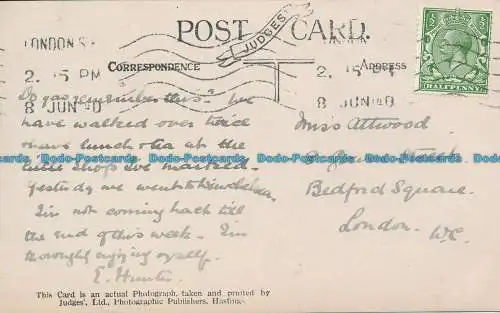 POST CARD.
JUDGES'
LONDON S
2. 15 PM
8 JUN
CORRESPONDENCE
ADDRESS
2. 15 PM
8 JUN
HALFPENNY
Do you remember this? We
have walked over twice
& have lunch & tea at the
little shops we
Yesterday we went to
I'm not coming back till
the end of this week. I'm
enjoying myself.
E. Hunter
Miss Attwood
Bedford Square.
London. W.C.
Dodo-Postcards Dodo-Postcards Dodo-Postcards Dodo-Postcards
This Card is an actual Photograph, taken and printed by
Judges', Ltd., Photographic Publishers, Hastings